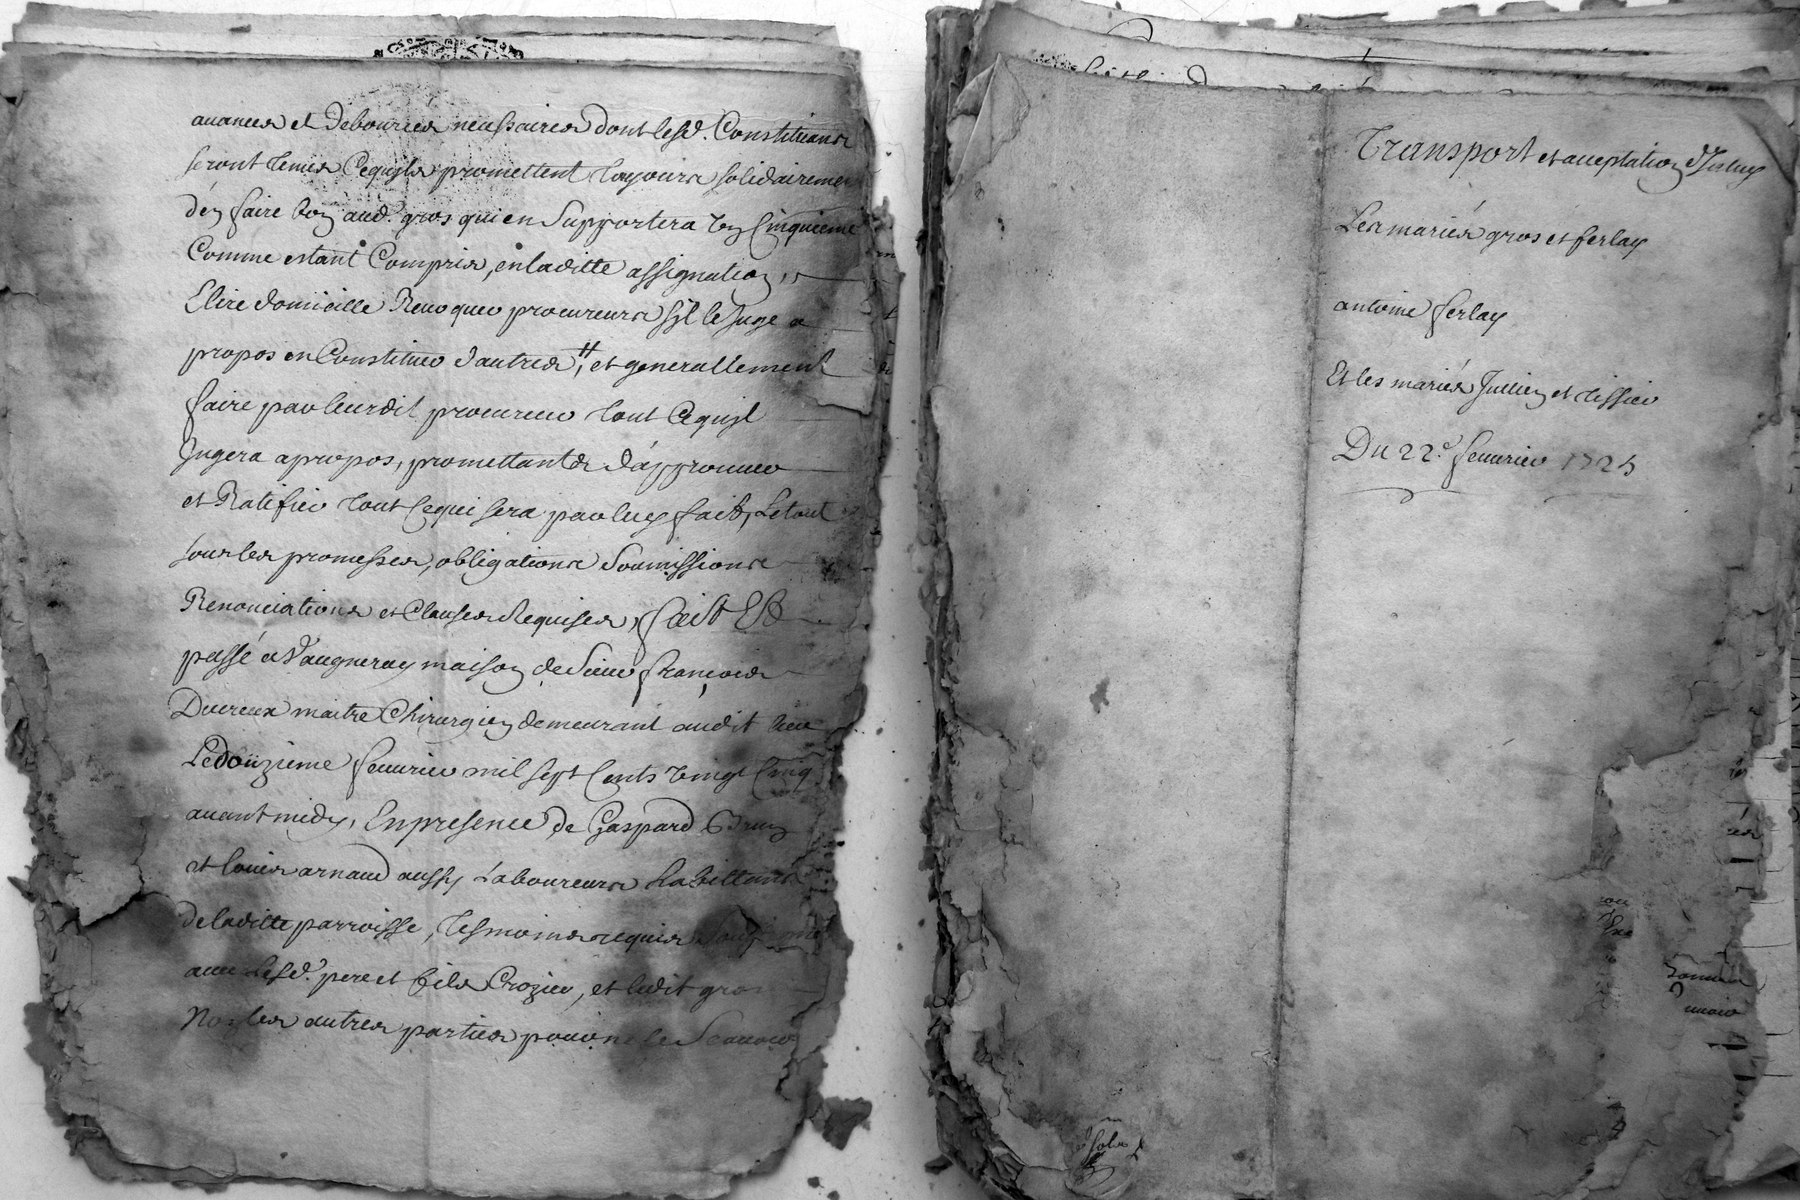 auances et debourcés necessaires dont lesd. Constituans
seront tenus Cequils promettent toujours solidairemen
d'en faire bon aud. gros qui en Supportera un Cinquieme
Comme estant Compris, en laditte assignation,
Elire domicille Reuoquer procureurs sil le Juge a
propos en Constituer d'autres, et generallement
faire par leurdit procureur tout Cequil
Jugera apropos, promettants d'approuuer
et Ratifier tout Cequi sera par luy fait, Le tout
sous les promesses, obligations Soumissions
Renonciations et Clauses Requises, fait Et
passé a Vaugneray maison de Sieur françois
Ducreux maitre Chirurgien demeurant audit lieu
Le douzieme feurier mil sept Cents vingt Cinq
auant midy, En presence de Gaspard Brun
et louis arnaud aussy Laboureurs habittans
de laditte parroisse, tesmoins requis
auec Lesd. pere et fils Crozier, et ledit gros
Non les autres parties pour ne le Scauoir
Transport et acceptation d'Jceluy
Les mariés gros et ferlay
antoine ferlay
Et les mariés Jullien et tissier
Du 22.e feurier 1725